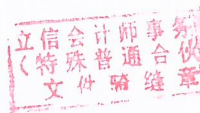 立信会计师事务所
(特殊普通合伙
文件骑缝章